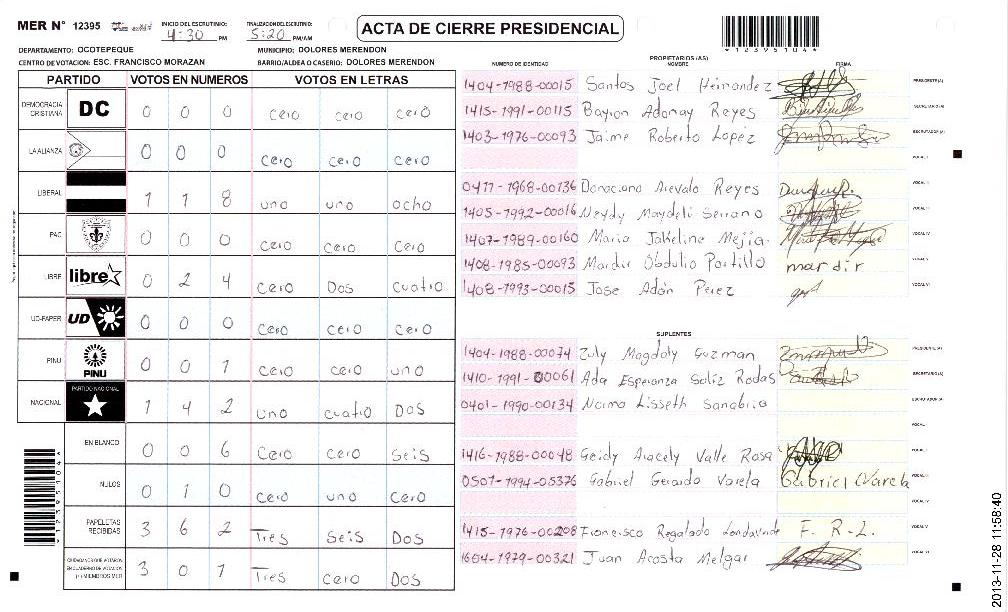 MER N° 12395
INICIO DEL ESCRUTINIO: 4:30 PM
FINALIZACION DEL ESCRUTINIO: 5:20 PM/AM
ACTA DE CIERRE PRESIDENCIAL
*12395104*
DEPARTAMENTO: OCOTEPEQUE
MUNICIPIO: DOLORES MERENDON
CENTRO DE VOTACION: ESC. FRANCISCO MORAZAN
BARRIO/ALDEA O CASERIO: DOLORES MERENDON
PARTIDO VOTOS EN NUMEROS VOTOS EN LETRAS
DEMOCRACIA CRISTIANA DC 0 0 0 cero cero cero
LA ALIANZA 0 0 0 cero cero cero
LIBERAL 1 1 8 uno uno ocho
PAC 0 0 0 cero cero cero
LIBRE libre 0 2 4 cero Dos cuatro
UD-FAPER UD 0 0 0 cero cero cero
PINU PINU 0 0 1 cero cero uno
NACIONAL PARTIDO NACIONAL 1 4 2 uno cuatro Dos
EN BLANCO 0 0 6 cero cero Seis
NULOS 0 1 0 cero uno cero
PAPELETAS RECIBIDAS 3 6 2 Tres Seis Dos
CIUDADANOS QUE VOTARON EN CUADERNO DE VOTACION (+) MIEMBROS MER 3 0 1 Tres cero Dos
*12395104*
PROPIETARIOS (AS)
NUMERO DE IDENTIDAD NOMBRE FIRMA
1404-1988-00015 Santos Joel Hernandez PRESIDENTE(A)
1415-1991-00115 Bayron Adonay Reyes SECRETARIO(A)
1403-1976-00093 Jaime Roberto Lopez ESCRUTADOR(A)
VOCAL I
0411-1968-00136 Donaciano Arevalo Reyes VOCAL II
1405-1992-00016 Neydy Maydeli Serrano VOCAL III
1407-1989-00160 Maria Jakeline Mejia VOCAL IV
1408-1985-00093 Mardir Obdulio Portillo mardir VOCAL V
1408-1993-00015 Jose Adán Perez VOCAL VI
SUPLENTES
1404-1988-00074 Zuly Magdaly Guzman PRESIDENTE(A)
1410-1991-00061 Ada Esperanza Soliz Rodas SECRETARIO(A)
0401-1990-00134 Norma Lisseth Sanabria ESCRUTADOR(A)
VOCAL I
1416-1988-00048 Geidy Aracely Valle Rosa VOCAL II
0501-1994-05376 Gabriel Gerardo Varela Gabriel Varela VOCAL III
VOCAL IV
1415-1976-00208 Francisco Regalado F. R. L. VOCAL V
1604-1979-00321 Juan Acosta Melgar VOCAL VI
2013-11-28 11:58:40